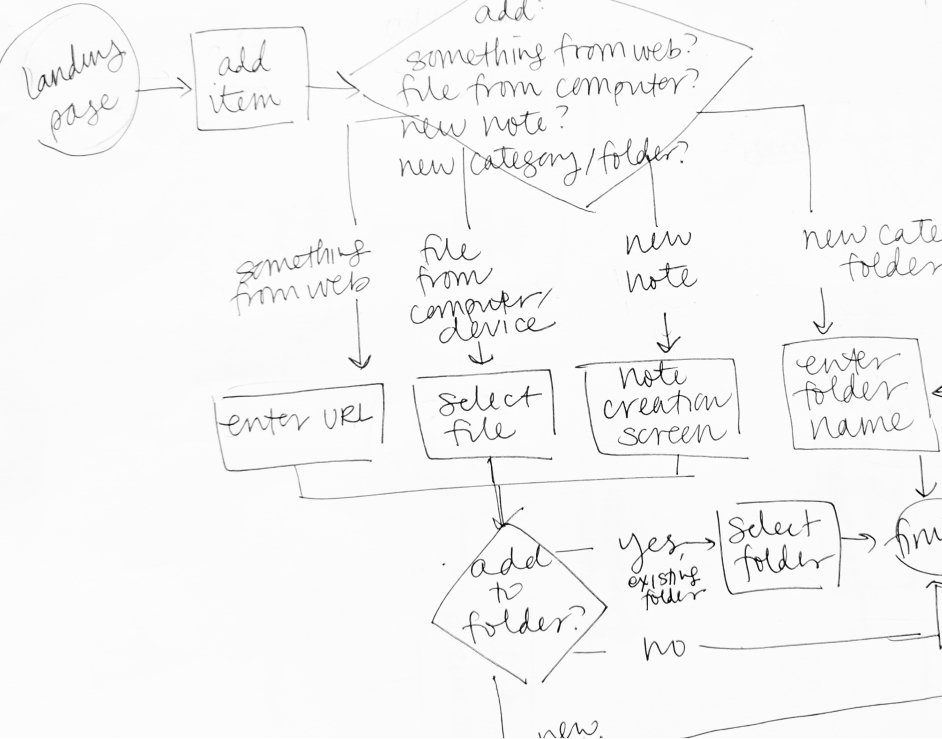 add?
something from web?
file from computer?
new note?
new category/folder?
landing
page
add
item
something
from web
file
from
computer/
device
new
note
new cate
folder
enter URL
select
file
note
creation
screen
enter
folder
name
add
to
folder?
yes,
existing
folder
select
folder
no
new